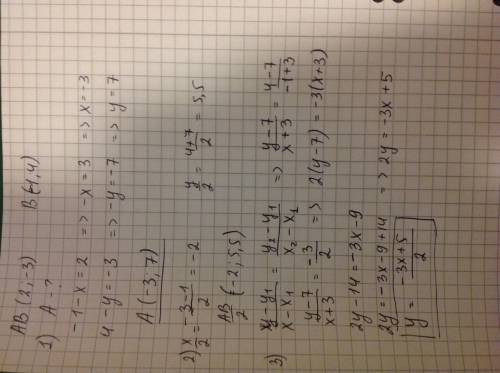 AB (2; -3) B(-1; 4)
1) A - ?
-1 - x = 2 => -x = 3 => x = -3
4 - y = -3 => -y = -7 => y = 7
A (-3; 7)
2) x/2 = (-3-1)/2 = -2 y/2 = (4+7)/2 = 5,5
AB/2 (-2; 5,5)
3) (y-y1)/(x-x1) = (y2-y1)/(x2-x1) => (y-7)/(x+3) = (4-7)/(-1+3)
(y-7)/(x+3) = -3/2 => 2(y-7) = -3(x+3)
2y - 14 = -3x - 9
2y = -3x - 9 + 14 => 2y = -3x + 5
y = (-3x+5)/2